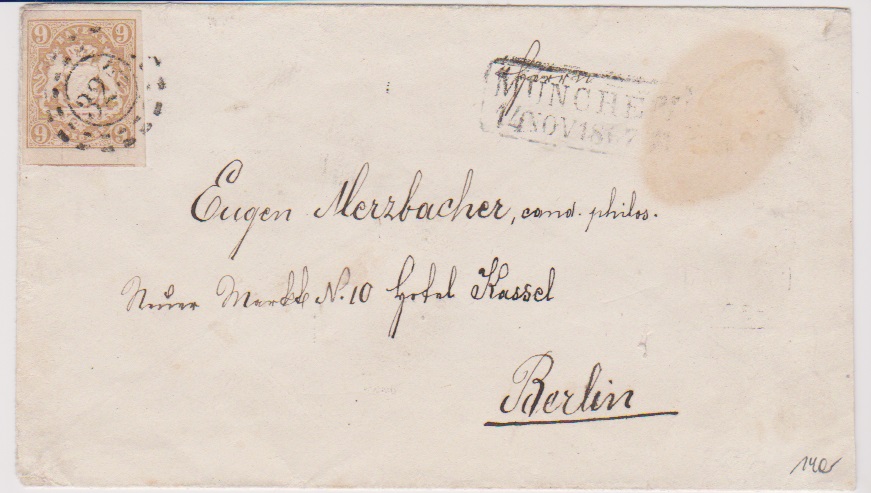 9 9
9 9
322
Herrn
MÜNCHEN
14 NOV 1867
Eugen Merzbacher, cand. philos.
Neuer Markt N. 10 Hotel Kassel
Berlin